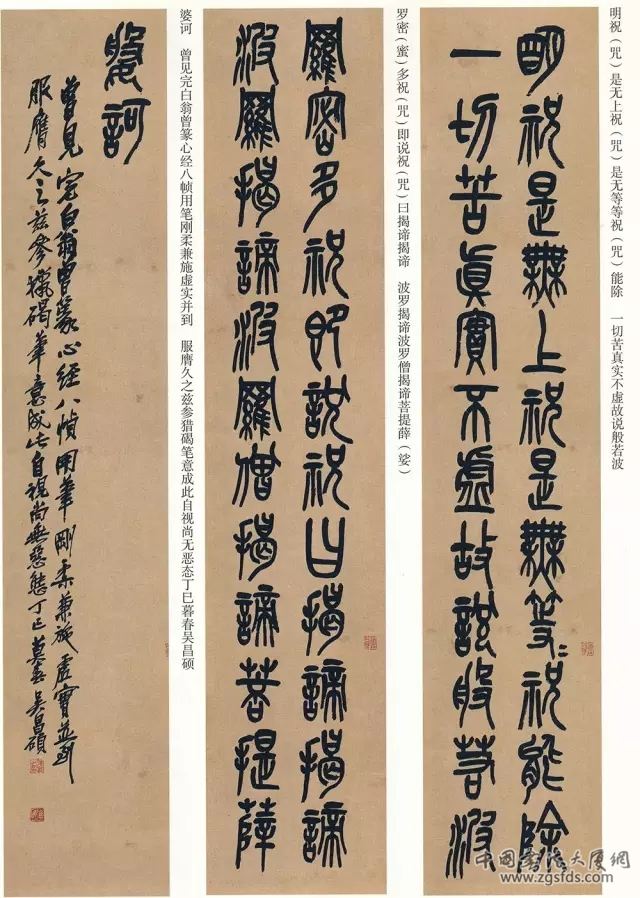 明祝(咒)是无上祝(咒)是无等等祝(咒)能除 一切苦真实不虚故说般若波
明祝是無上祝是無等〻祝能除
一切苦真實不虛故說般若波
罗密(蜜)多祝(咒)即说祝(咒)曰揭谛揭谛 波罗揭谛波罗僧揭谛菩提薛(娑)
羅密多祝即說祝曰揭諦揭諦
波羅揭諦波羅僧揭諦菩提薛
婆诃 曾见完白翁曾篆心经八帧用笔刚柔兼施虚实并到 服膺久之兹参猎碣笔意成此自视尚无恶态丁巳暮春吴昌硕
婆訶
曾見完白翁曾篆心經八幀用筆剛柔兼施虛實並到
服膺久之茲參獵碣筆意成此自視尚無惡態丁巳莫春吳昌碩
中国书法大厦网
www.zgsfds.com